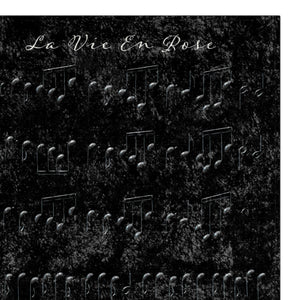 La Vie En Rose